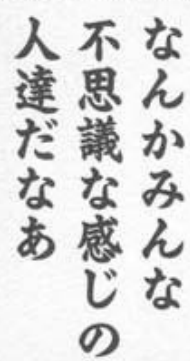 なんかみんな
不思議な感じの
人達だなあ